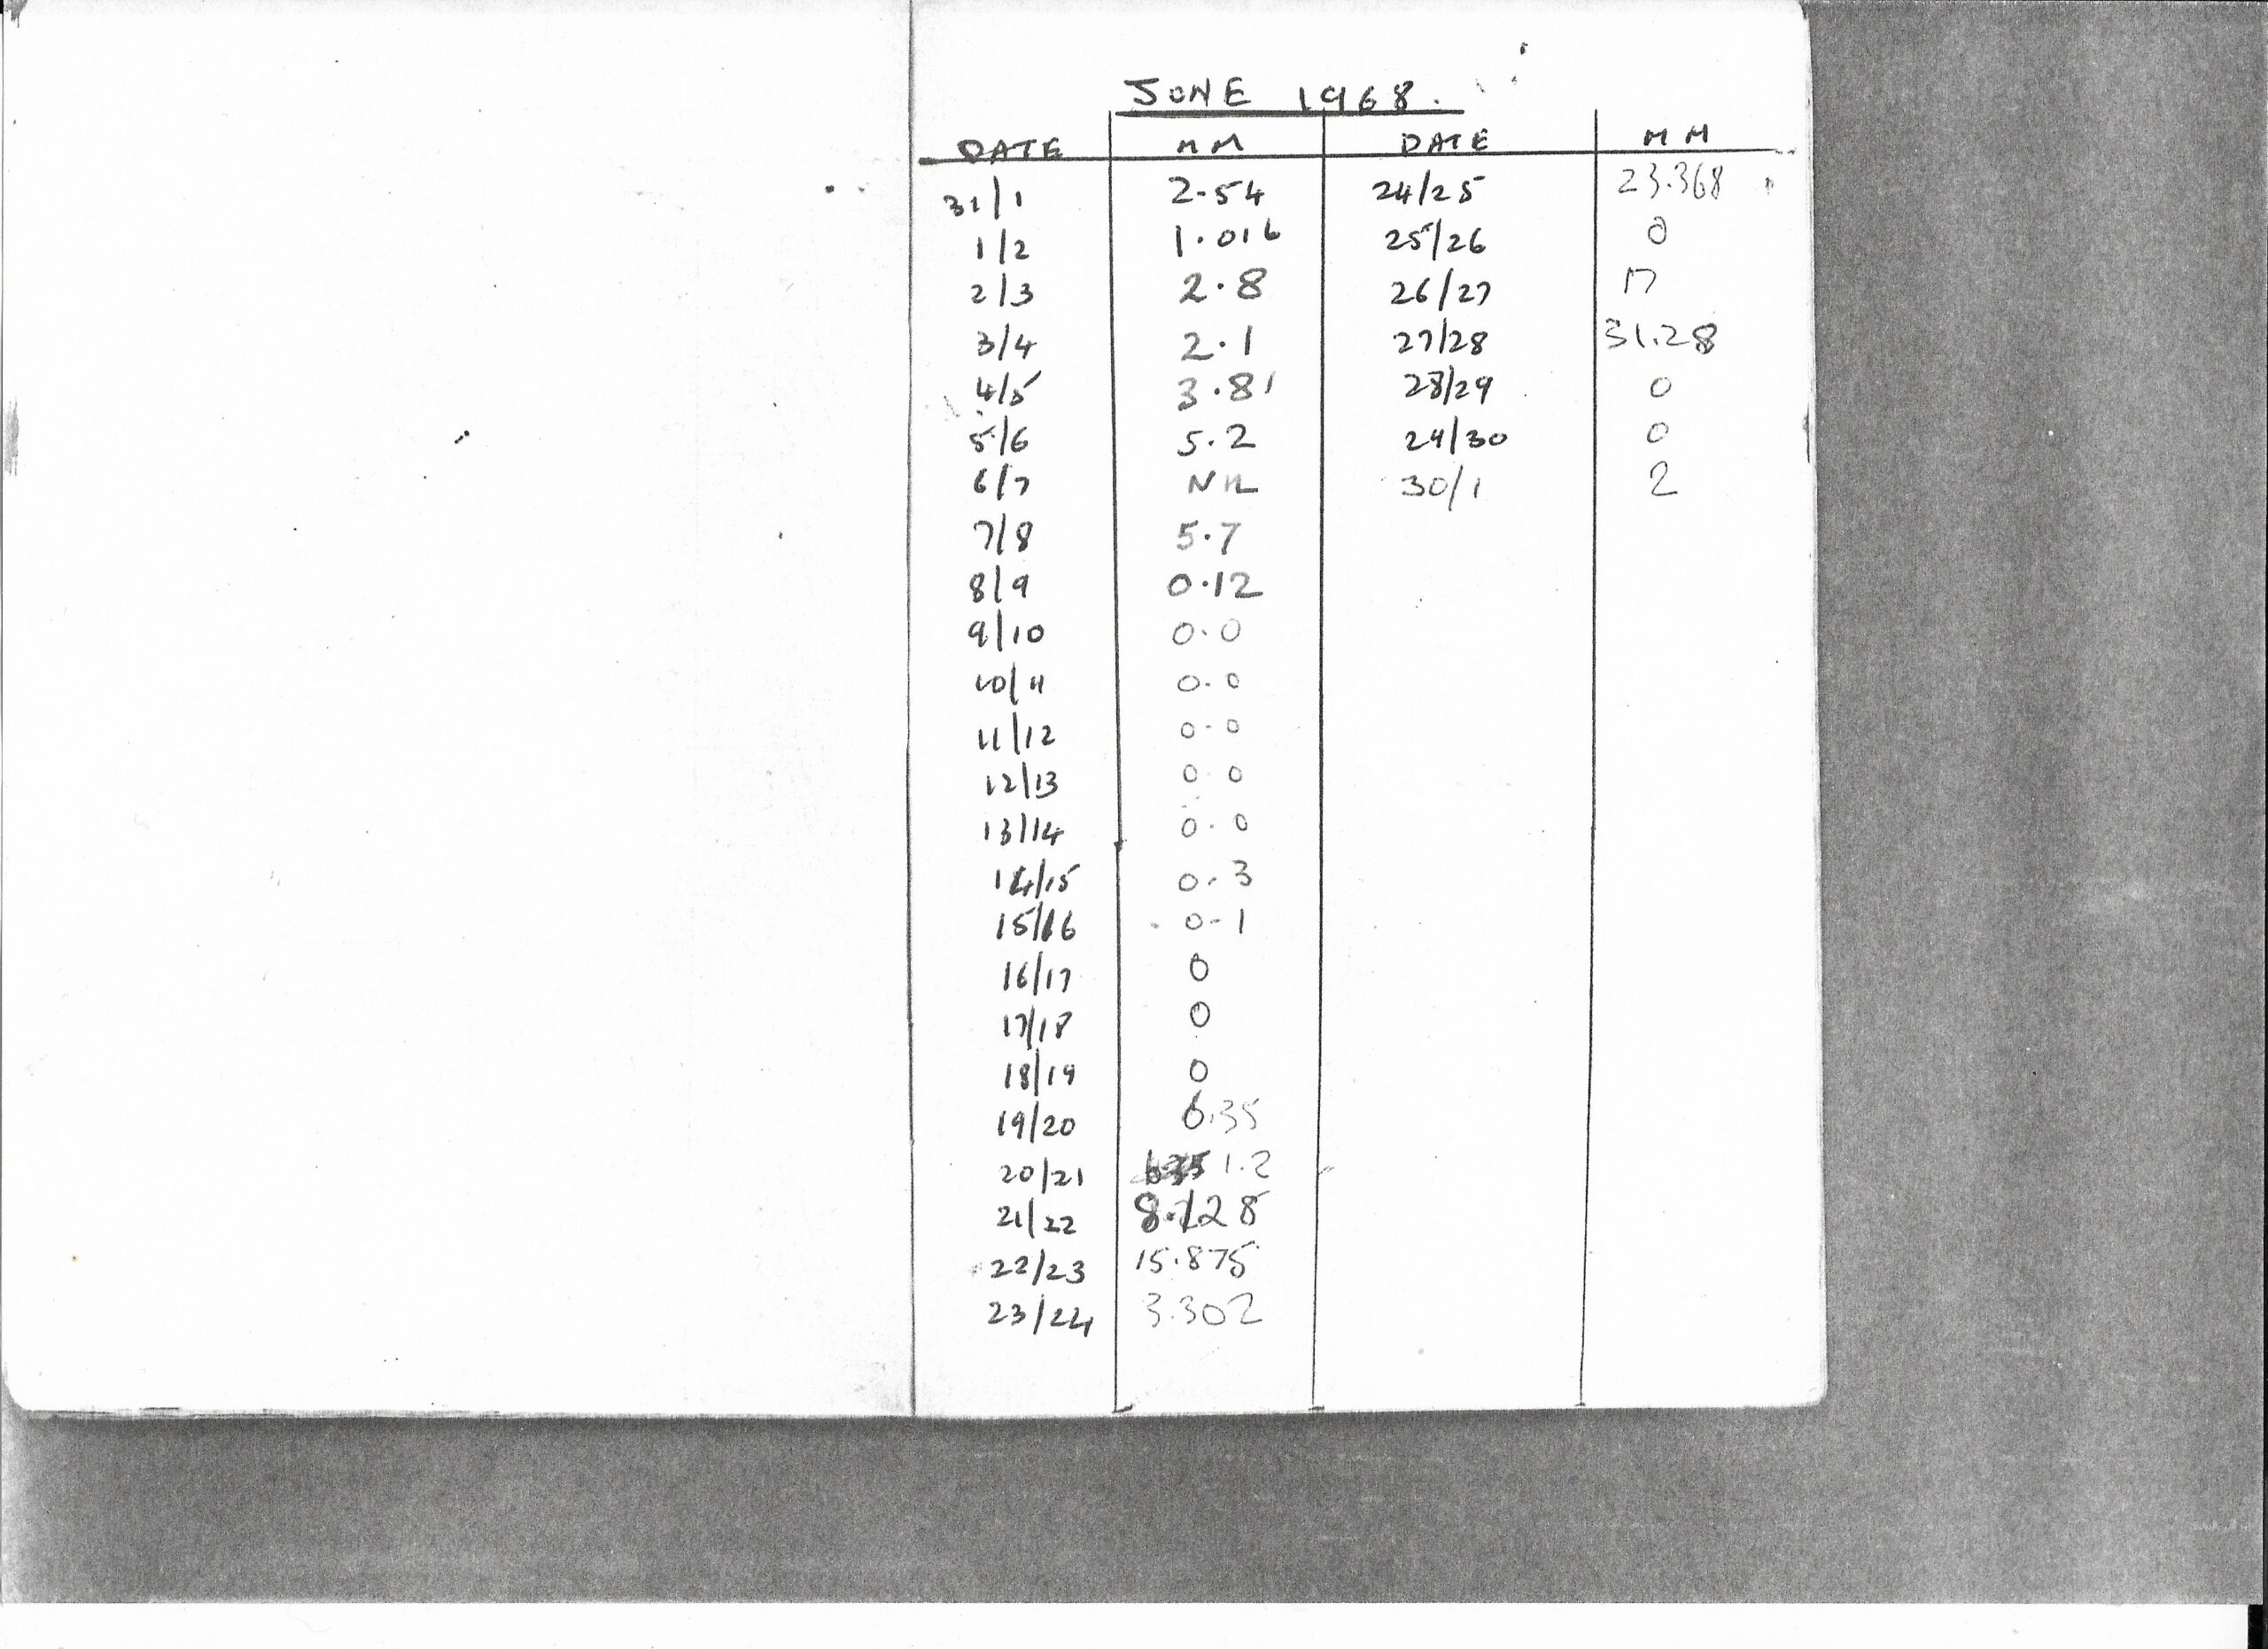 JUNE 1968.
DATE MM DATE MM
31/1 2.54 24/25 23.368
1/2 1.016 25/26 0
2/3 2.8 26/27 17
3/4 2.1 27/28 31.28
4/5 3.81 28/29 0
5/6 5.2 29/30 0
6/7 NIL 30/1 2
7/8 5.7
8/9 0.12
9/10 0.0
10/11 0.0
11/12 0.0
12/13 0.0
13/14 0.0
14/15 0.3
15/16 0.1
16/17 0
17/18 0
18/19 0
19/20 6.35
20/21 1.2
21/22 8.128
22/23 15.875
23/24 3.302